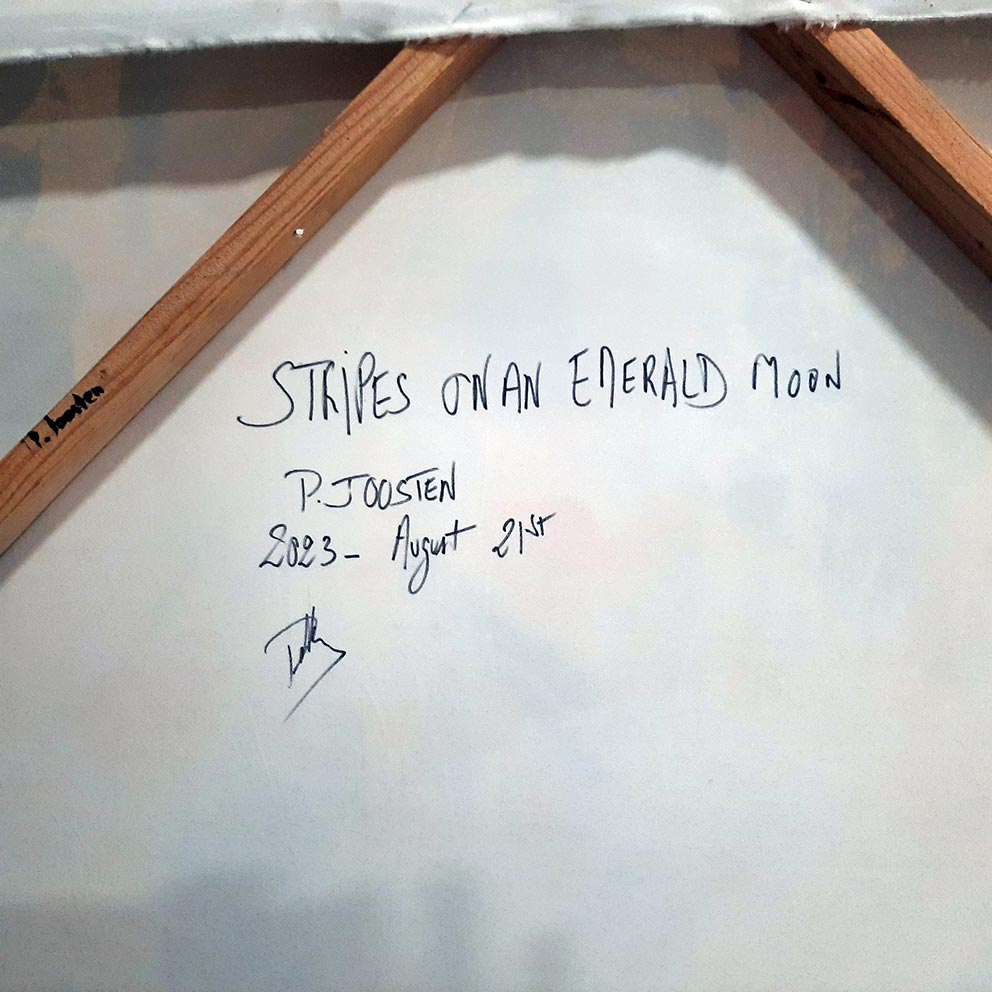 STRiPES ON AN EMERALD MOON
P. JOOSTEN
2023 - August 21st
P. Joosten